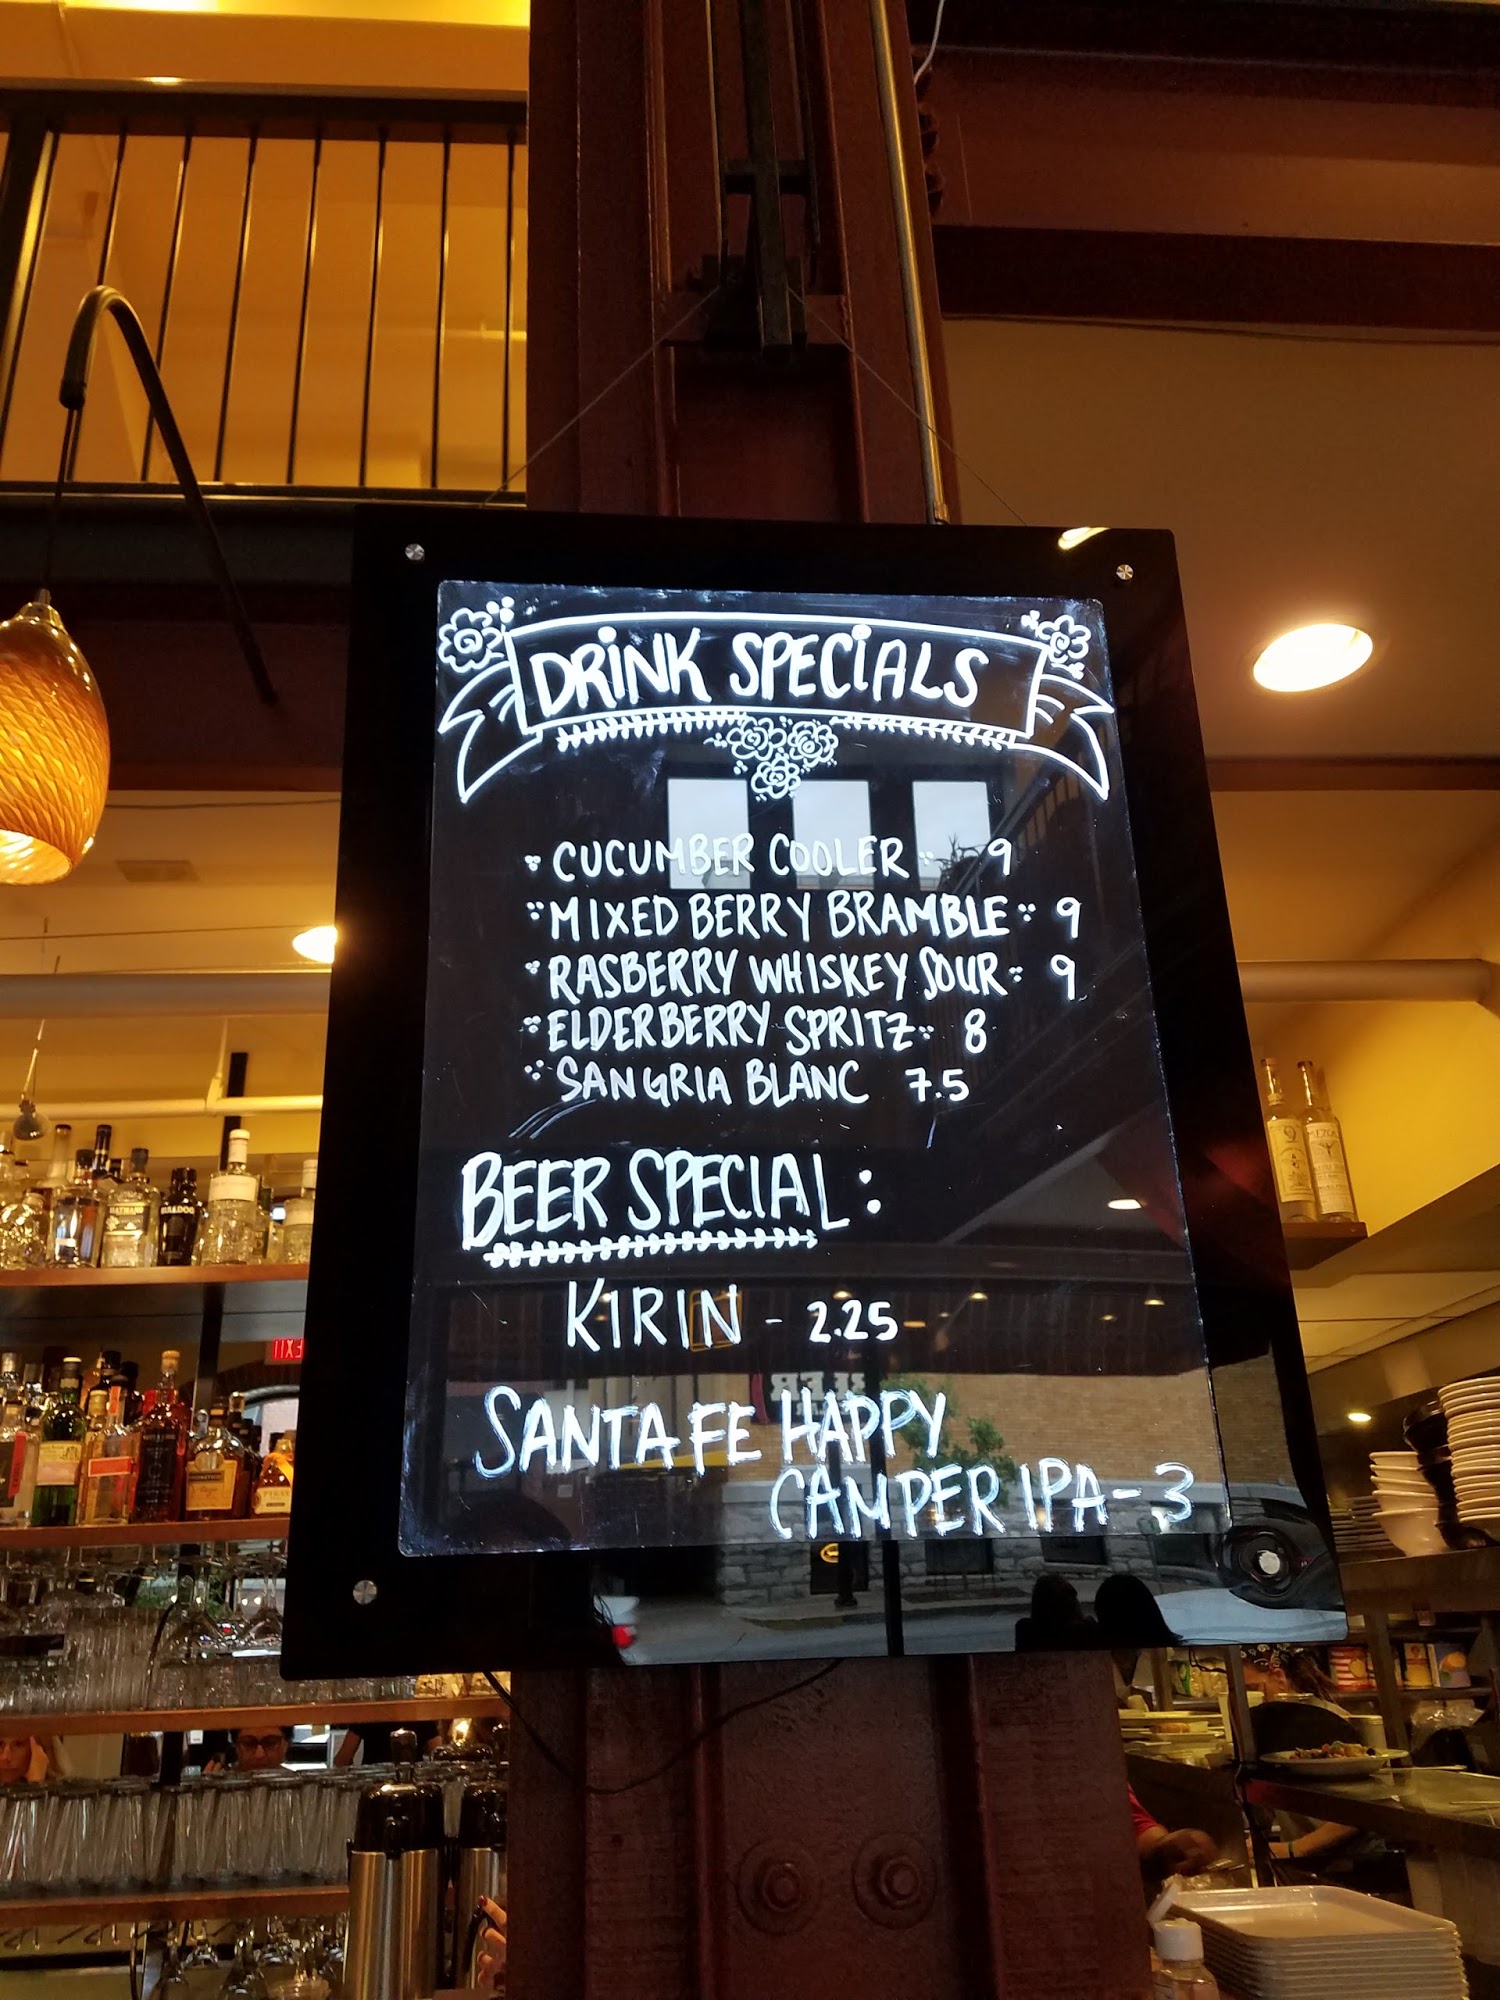 DRINK SPECIALS
CUCUMBER COOLER 9
MIXED BERRY BRAMBLE 9
RASBERRY WHISKEY SOUR 9
ELDERBERRY SPRITZ 8
SANGRIA BLANC 7.5
BEER SPECIAL:
KIRIN - 2.25
SANTA FE HAPPY
CAMPER IPA - 3
EXIT